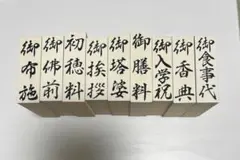 御布施
御佛前
初穂料
御挨拶
御塔婆
御膳料
御入学祝
御香典
御食事代